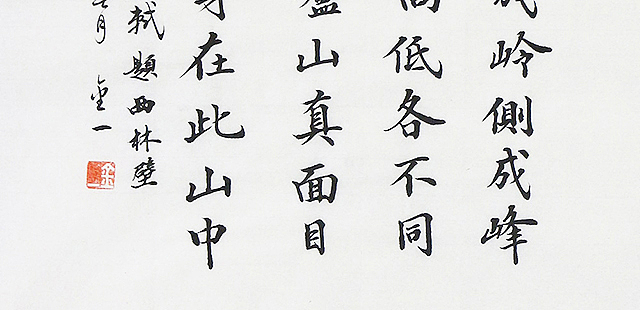 岭側成峰
低各不同
山真面目
在此山中
軾題西林壁
月 金一